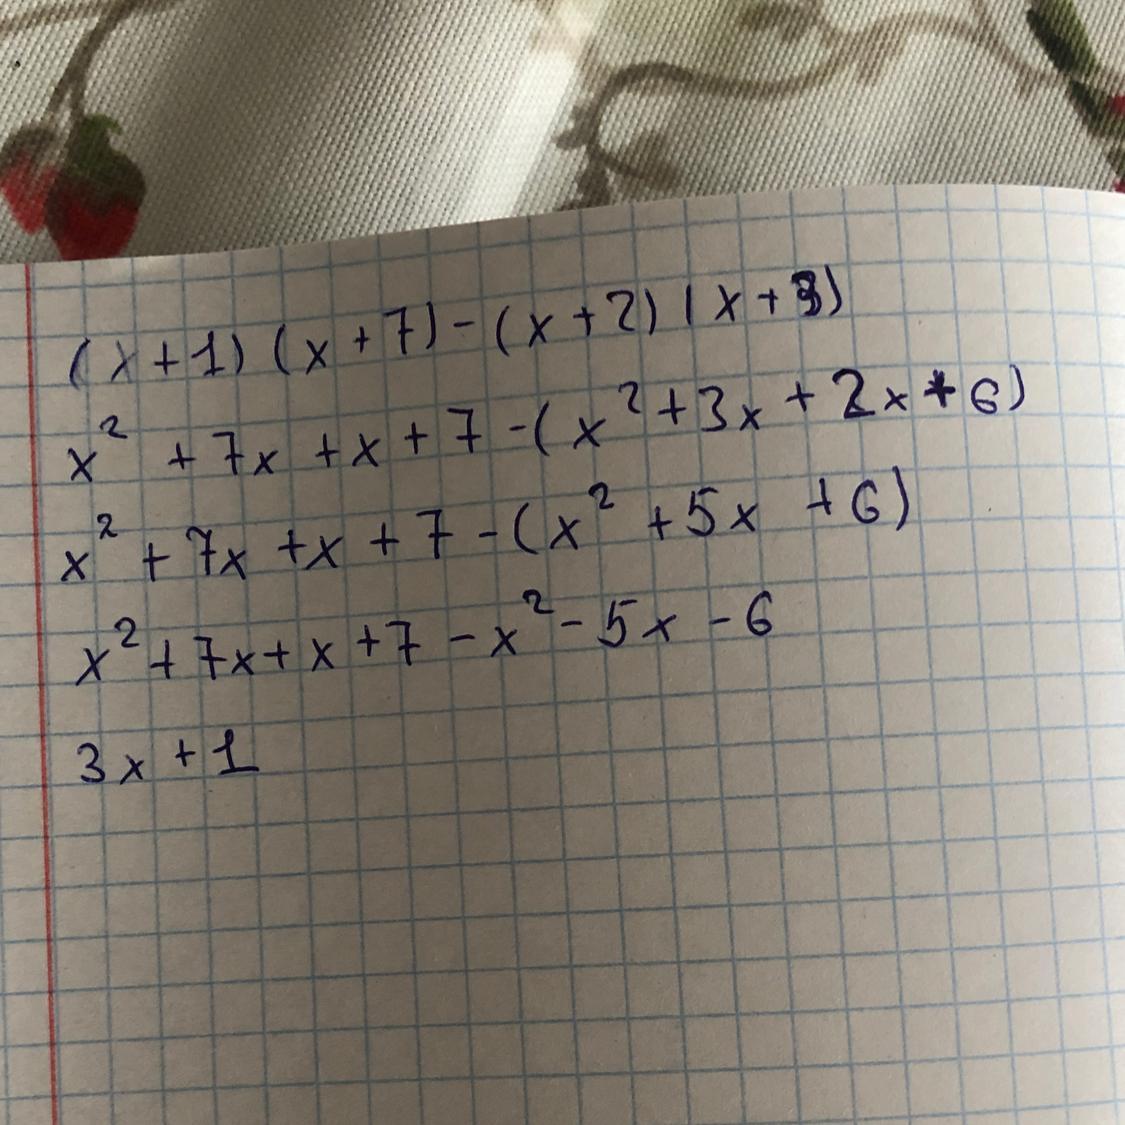 (x+1)(x+7)-(x+2)(x+3)
x² +7x +x+7-(x²+3x+2x+6)
x²+7x+x+7-(x²+5x +6)
x²+7x+x+7-x²-5x-6
3x+1